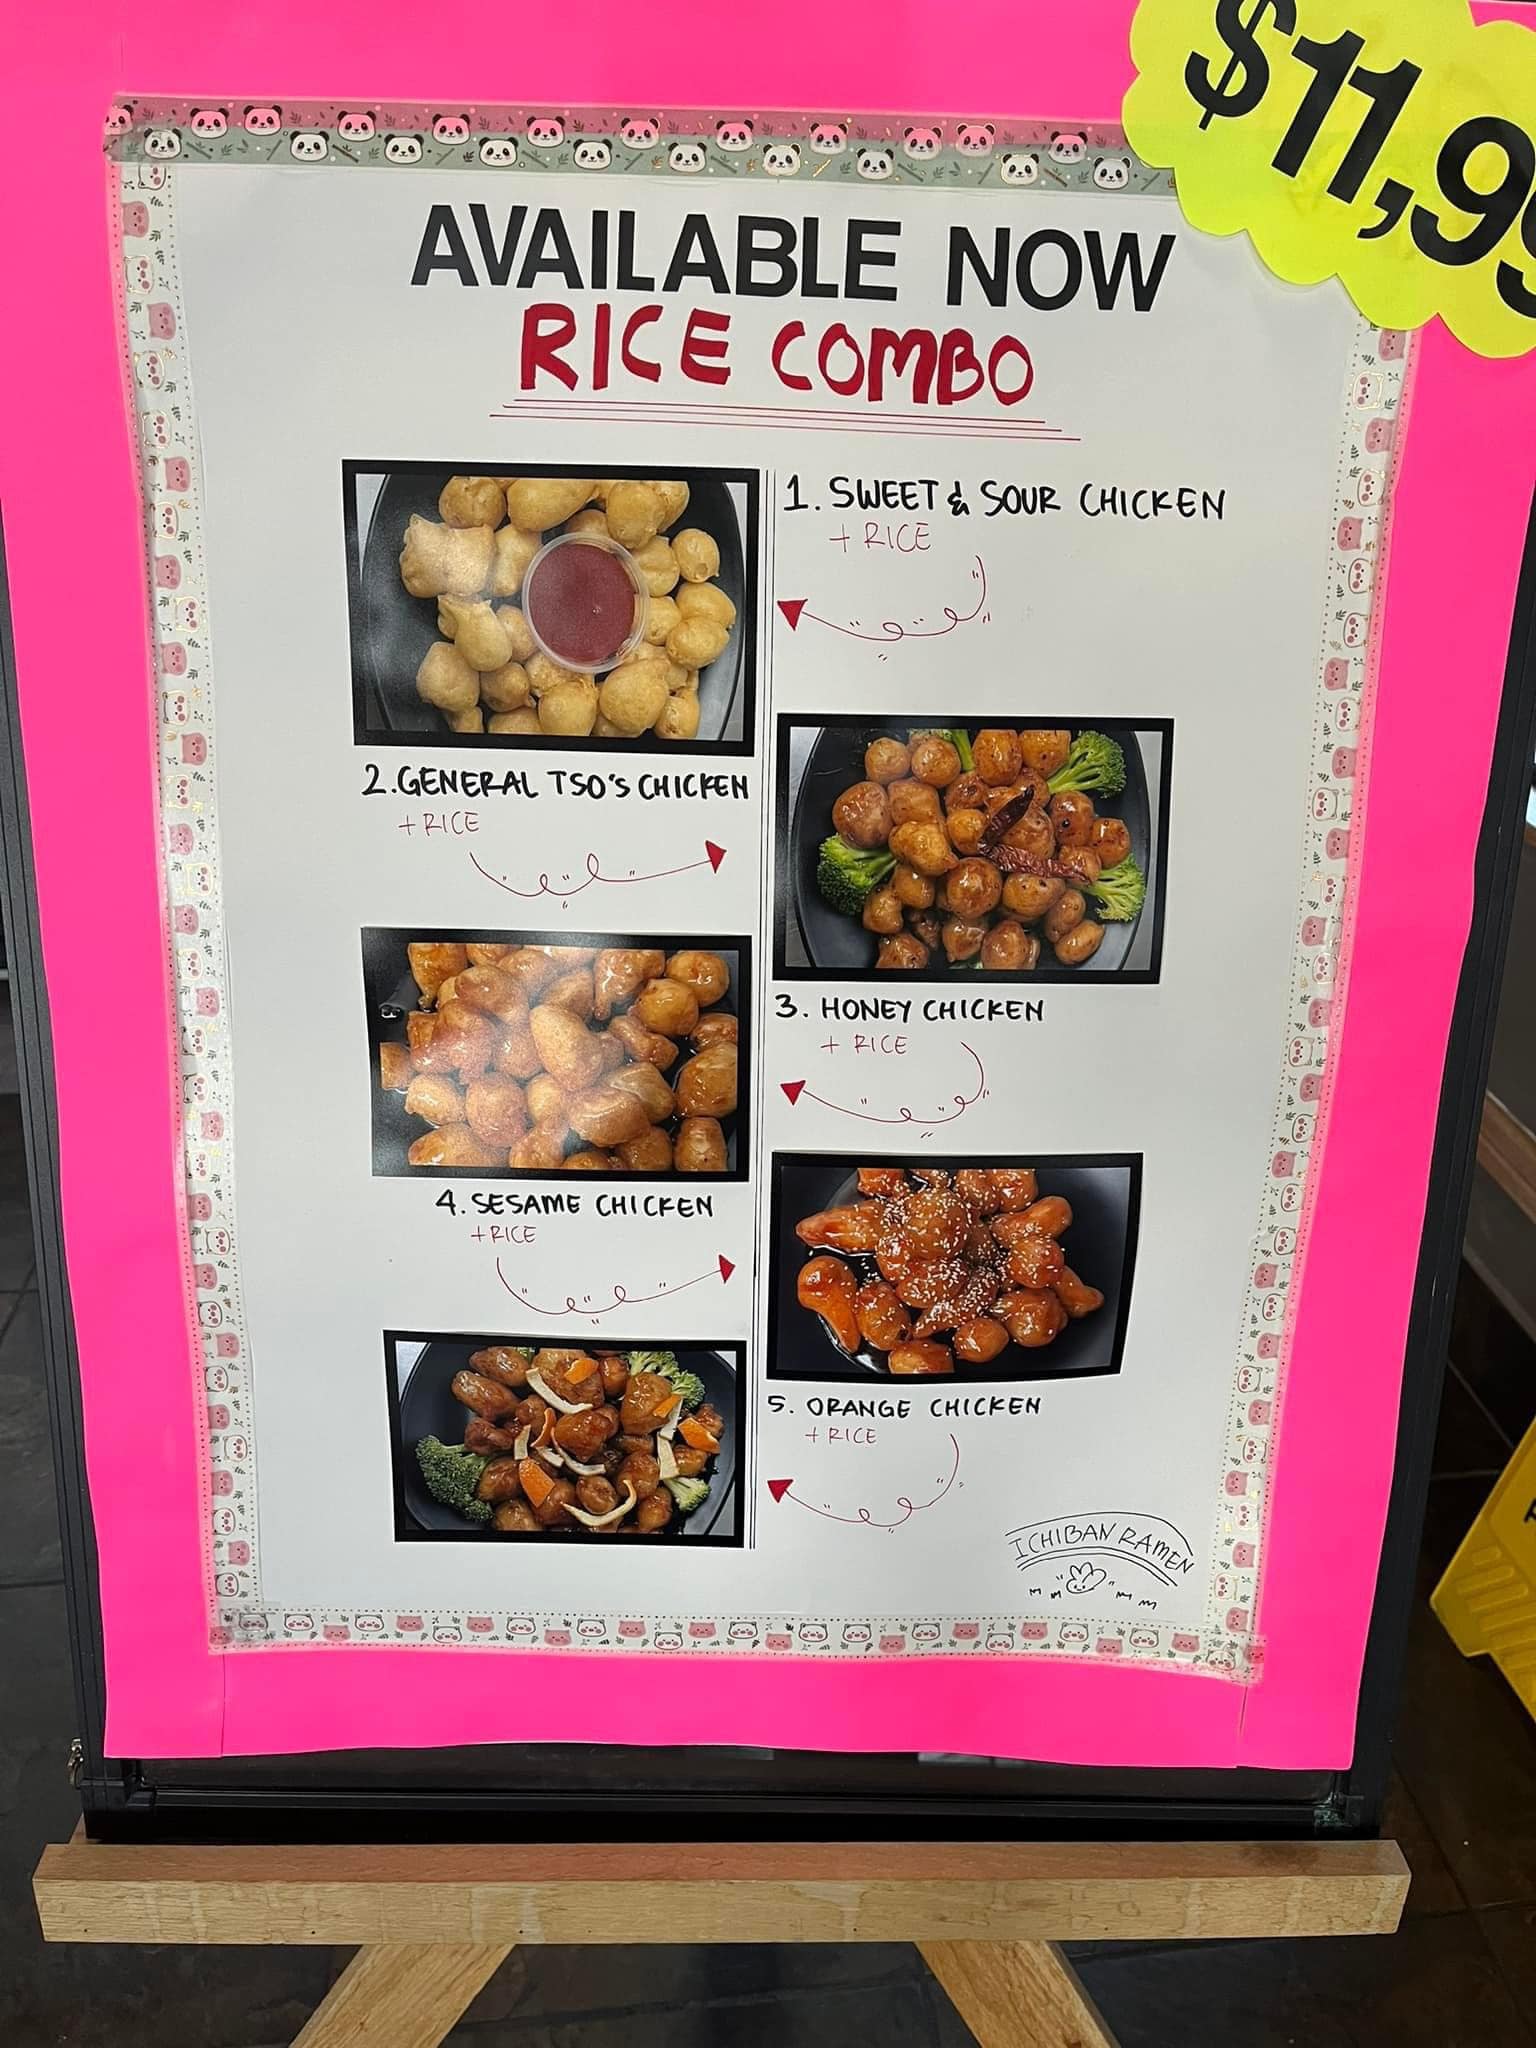 $11,99
AVAILABLE NOW
RICE COMBO
1. SWEET & SOUR CHICKEN
+ RICE
2. GENERAL TSO'S CHICKEN
+ RICE
3. HONEY CHICKEN
+ RICE
4. SESAME CHICKEN
+ RICE
5. ORANGE CHICKEN
+ RICE
ICHIBAN RAMEN